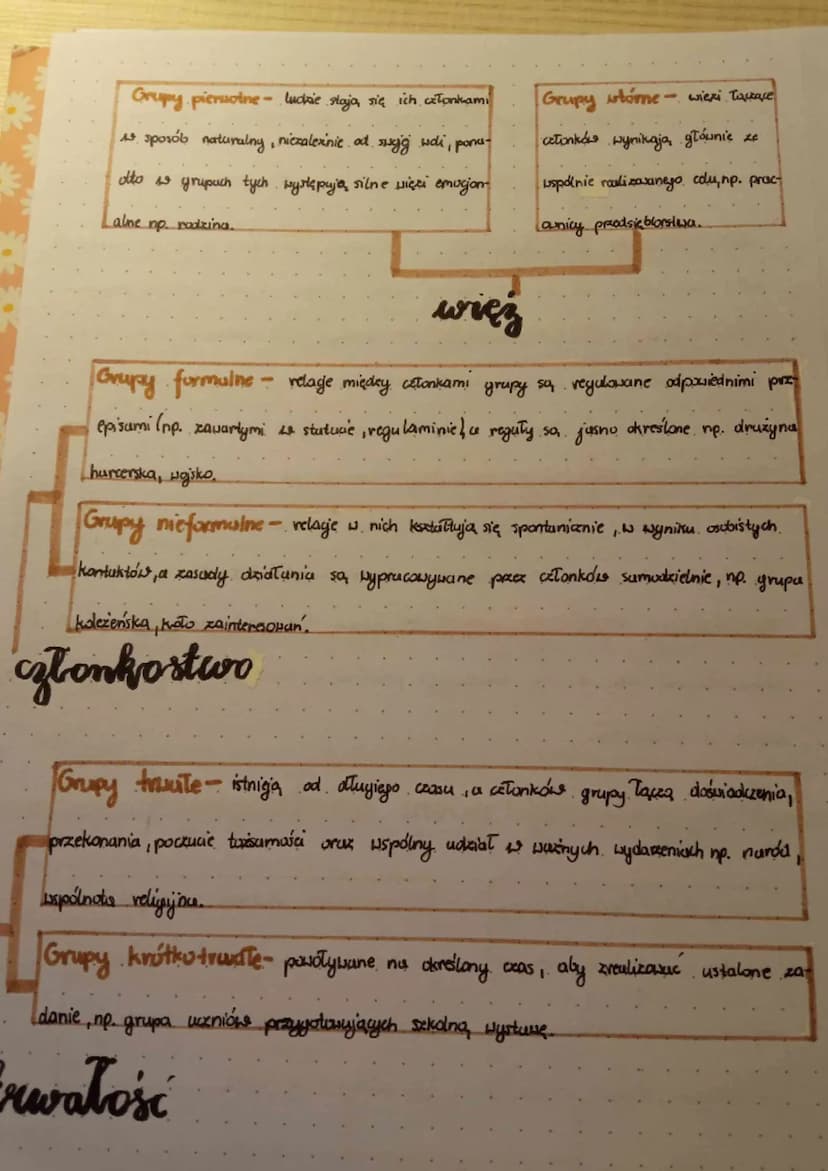 Grupy pierwotne - ludzie stają się ich członkami
w sposób naturalny, niezależnie od swojej woli, pona-
dto w grupach tych występują silne więzi emocjon-
alne np. rodzina.
Grupy wtórne - więzi łączące
członków wynikają głównie ze
wspólnie realizowanego celu, np. prac-
ownicy przedsiębiorstwa.
więź
Grupy formalne - relacje między członkami grupy są regulowane odpowiednimi prz-
episami (np. zawartymi w statucie, regulaminie) a reguły są jasno określone np. drużyna
harcerska, wojsko.
Grupy nieformalne - relacje w nich kształtują się spontanicznie, w wyniku osobistych
kontaktów, a zasady działania są wypracowywane przez członków samodzielnie, np. grupa
koleżeńska, koło zainteresowań.
członkostwo
Grupy trwałe - istnieją od długiego czasu, a członków grupy łączą doświadczenia,
przekonania, poczucie tożsamości oraz wspólny udział w ważnych wydarzeniach np. naród,
wspólnota religijna.
Grupy krótkotrwałe - powoływane na określony czas, aby zrealizować ustalone za-
danie, np. grupa uczniów przygotowujących szkolną wystawę.
trwałość